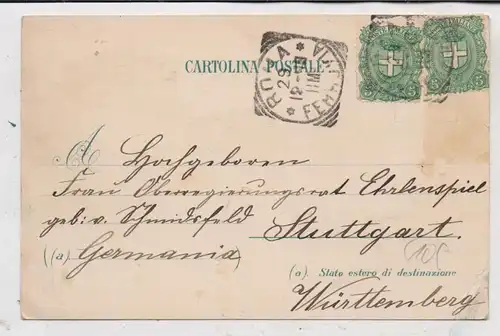 CARTOLINA POSTALE
ROMA FERROVIA
A
Hochgeboren
Frau Oberregierungsrat Ehrlenspiel
geb: v. Schmidsfeld Stuttgart.
(a) Germania)
(a). Stato estero di destinazione
Württemberg